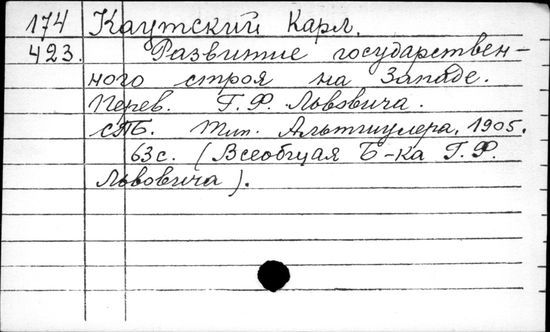 174 Каутский Карл.
423. Развитие государствен-
ного строя на Западе.
Перев. Г. Ф. Львовича.
СПБ. Тип. Альтшулера, 1905.
63 с. (Всеобщая Б-ка Г. Ф.
Львовича).